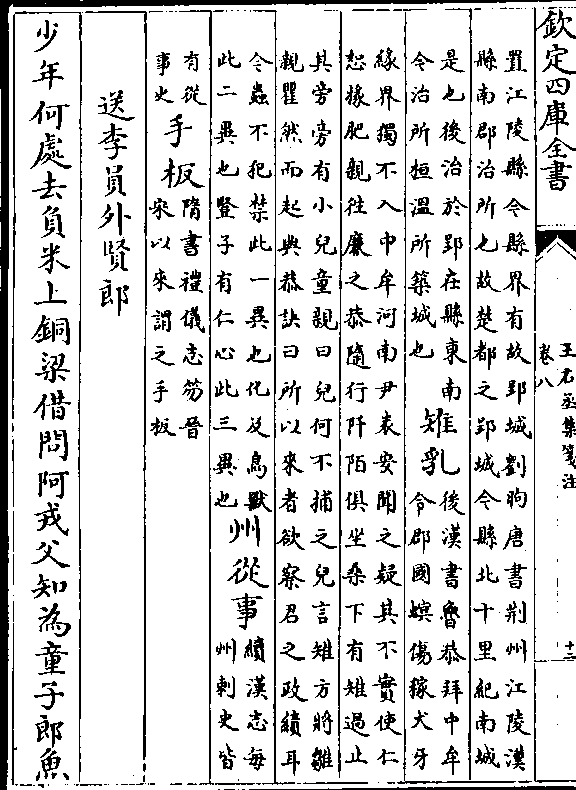 欽定四庫全書
王右丞集箋注
卷八
十二
置江陵縣令縣界有故郢城劉昫唐書荆州江陵漢
縣南郡治所也故楚都之郢城今縣北十里紀南城
是也後治於郢在縣東南
今治所桓温所築城也
雉乳
後漢書魯恭拜中牟
令郡國螟傷稼犬牙
緣界獨不入中牟河南尹袁安聞之疑其不實使仁
恕掾肥親往廉之恭隨行阡陌俱坐桑下有雉過止
其旁旁有小兒童親曰兒何不捕之兒言雉方將雛
親瞿然而起與恭訣曰所以來者欲察君之政績耳
今蟲不犯禁此一異也化及鳥獸
此二異也豎子有仁心此三異也
州從事
續漢志每
州刺史皆
有從
事史
手板
隋書禮儀志笏晉
宋以來謂之手板
送李員外賢郎
少年何處去負米上銅梁借問阿戎父知為童子郎魚